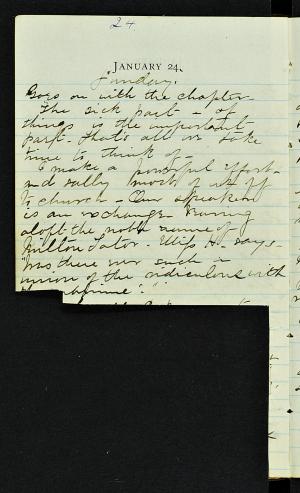 24
JANUARY 24.
Sunday.
Goes on with the chapter-
The sick part - of
things is the important
part. That's all we take
time to think of -
I make a powerful effort-
and rally most of us off
to church - Our speaker
is an exchange - running
aloft the noble name of
Milton Tator. Miss H. says-
"Was there ever such a
union of the ridiculous with
the sublime"!